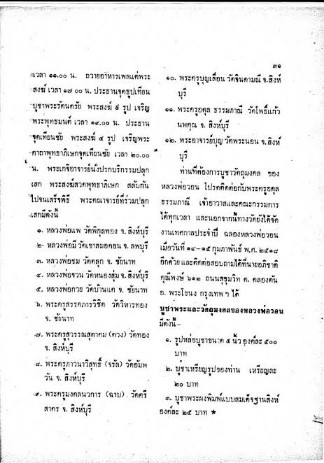 ๓๑
เวลา ๑๑.๐๐ น. ถวายอาหารเพลแด่พระ
สงฆ์ เวลา ๑๗ ๐๐ น. ประธานจุดธูปเทียน
บูชาพระรัตนตรัย พระสงฆ์ ๕ รูป เจริญ
พระพุทธมนต์ เวลา ๑๙.๐๐ น. ประธาน
จุดเทียนชัย พระสงฆ์ ๔ รูป เจริญพระ
คาถาพุทธาภิเษกจุดเทียนชัย เวลา ๒๐.๐๐
น. พระเกจิอาจารย์นั่งปรกบริกรรมปลุก
เสก พระสงฆ์สวดพุทธาภิเษก สลับกัน
ไปจนเสร็จพิธี พระคณาจารย์ที่ร่วมปลุก
เสกมีดังนี้
๑. หลวงพ่อแพ วัดพิกุลทอง จ. สิงห์บุรี
๒. หลวงพ่อมี วัดเขาสมอคอน จ. ลพบุรี
๓. หลวงพ่อชม วัดตลุก จ. ชัยนาท
๔. หลวงพ่อชวน วัดหนองสุ่ม จ. สิงห์บุรี
๕. หลวงพ่อกวย วัดบ้านแค จ. ชัยนาท
๖. พระครูสรรคภารวิชิต วัดวิหารทอง
จ. ชัยนาท
๗. พระครูสุวรรณ (ดวง) วัดทอง
จ. สิงห์บุรี
๘. พระครูภาวนาวิสุทธิ์ (จรัล) วัดอัมพ
วัน จ. สิงห์บุรี
๙. พระครูมงคลนวการ (ฉาบ) วัดศรี
สาคร จ. สิงห์บุรี
๑๐. พระครูบุญเลื่อน วัดจินดามณี จ.สิงห์
บุรี
๑๑. พระครูอดุล ธรรมภาณี วัดโพธิ์แก้ว
นพคุณ จ. สิงห์บุรี
๑๒. พระอาจารย์บุญ วัดพระนอน จ.สิงห์
บุรี
ท่านที่ต้องการบูชาวัตถุมงคล ของ
หลวงพ่อวอน โปรดติดต่อกับพระครูอดุล
ธรรมภาณี เจ้าอาวาสและคณะกรรมการ
ได้ทุกเวลา และนอกจากนี้ทางวัดยังได้จัด
งานเทศกาลประจำปี ฉลองหลวงพ่อวอน
เมื่อวันที่ ๑๔-๑๕ กุมภาพันธ์ พ.ศ. ๒๕๑๘
อีกด้วยและติดต่อสอบถามได้ที่นายอภิชาติ
คุณีพงษ์ ๖๑๒ ถนนสุขุมวิท ต. คลองตัน
อ. พระโขนง กรุงเทพ ฯ ได้
บูชาพระและวัตถุมงคลของหลวงพ่อวอน
มีดังนี้-
๑. รูปหล่อบูชาขนาด ๕ นิ้ว องค์ละ ๕๐๐
บาท
๒. บูชาเหรียญรูปของท่าน เหรียญละ
๒๐ บาท
๓. บูชาพระผงพิมพ์แบบสมเด็จฐานสิงห์
องค์ละ ๒๕ บาท ★